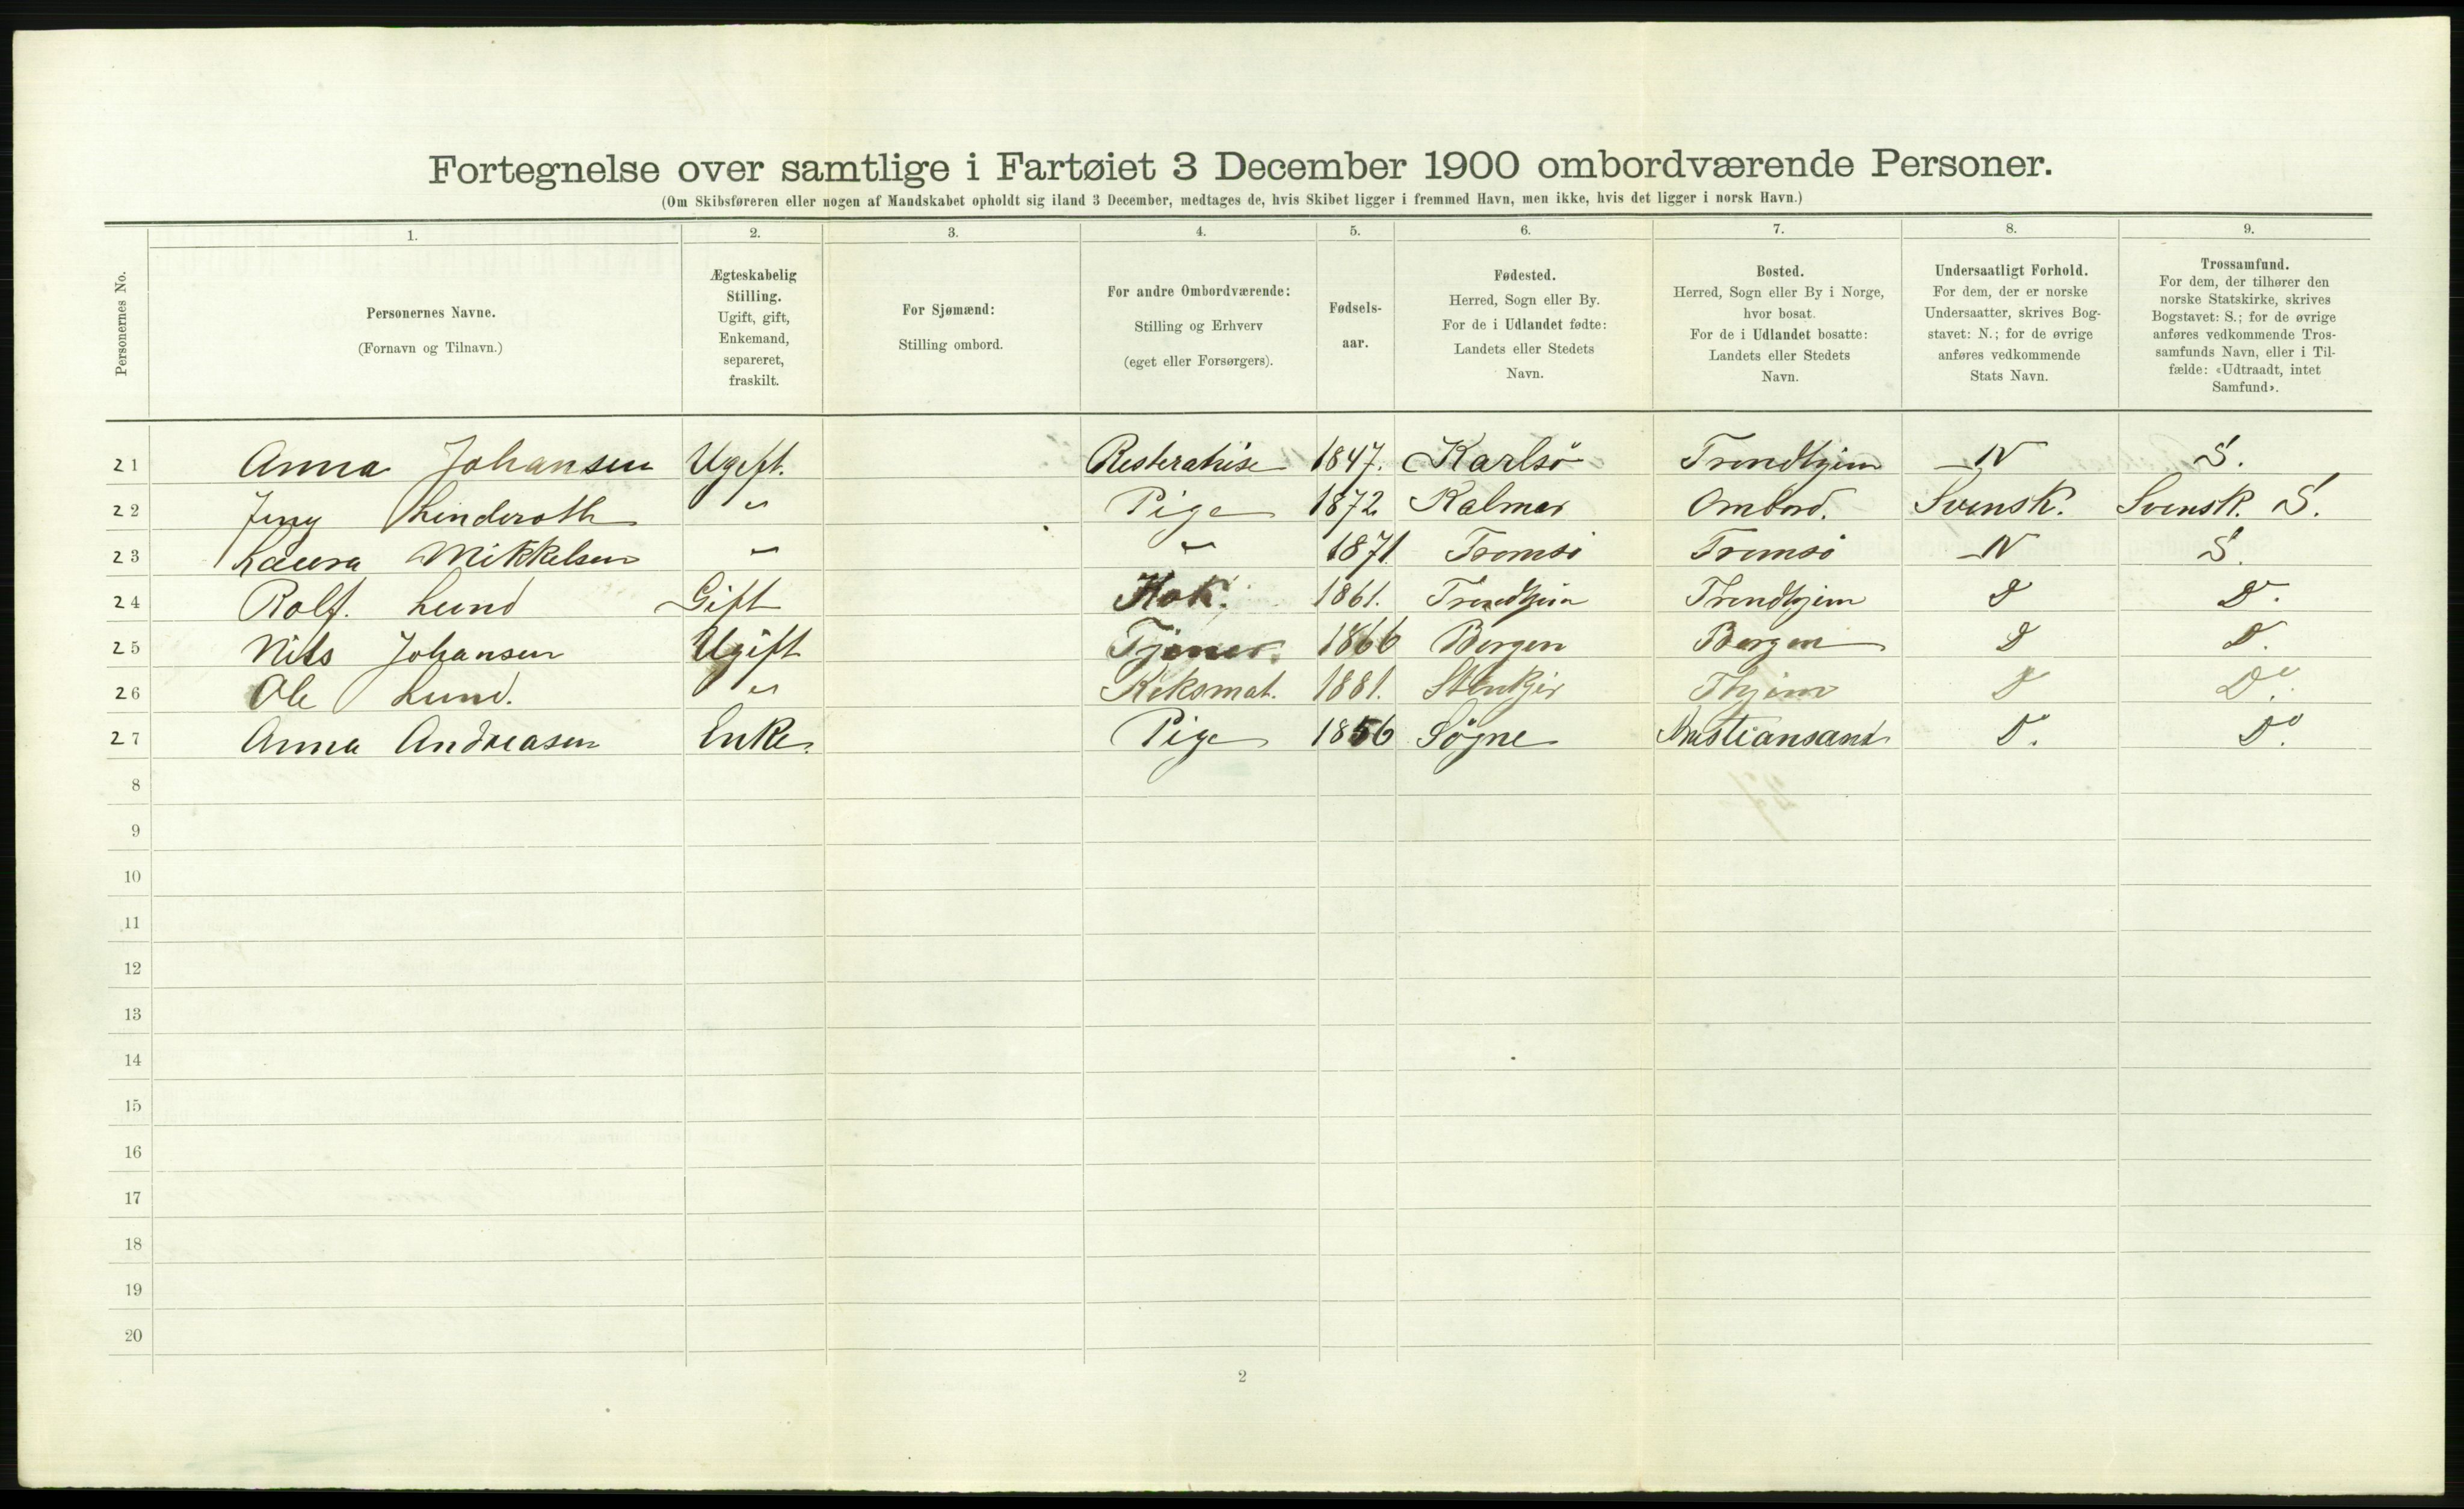 Fortegnelse over samtlige i Fartøiet 3 December 1900 ombordværende Personer.
(Om Skibsføreren eller nogen af Mandskabet opholdt sig iland 3 December, medtages de, hvis Skibet ligger i fremmed Havn, men ikke, hvis det ligger i norsk Havn.)
Personernes No.
1.
Personernes Navne.
(Fornavn og Tilnavn.)
2.
Ægteskabelig
Stilling.
Ugift, gift,
Enkemand,
separeret,
fraskilt.
3.
For Sjømænd:
Stilling ombord.
4.
For andre Ombordværende:
Stilling og Erhverv
(eget eller Forsørgers).
5.
Fødsels-
aar.
6.
Fødested.
Herred, Sogn eller By.
For de i Udlandet fødte:
Landets eller Stedets
Navn.
7.
Bosted.
Herred, Sogn eller By i Norge,
hvor bosat.
For de i Udlandet bosatte:
Landets eller Stedets
Navn.
8.
Undersaatligt Forhold.
For dem, der er norske
Undersaatter, skrives Bog-
stavet: N.; for de øvrige
anføres vedkommende
Stats Navn.
9.
Trossamfund.
For dem, der tilhører den
norske Statskirke, skrives
Bogstavet: S.; for de øvrige
anføres vedkommende Tros-
samfunds Navn, eller i Til-
fælde: «Udtraadt, intet
Samfund».
21 Anna Johansen Ugift. 1847. Karlsö Trondhjem N S.
22 Jeny Linderoth " Pige 1872 Kalmar Ombord. Svensk. Svensk. S.
23 Laura Mikkelsen " " 1871. Tromsö Tromsö N S.
24 Rolf. Lund Gift Kok. 1861. Trondhjem Trondhjem D D.
25 Nils Johansen Ugift Tjener. 1866 Bergen Bergen D D.
26 Ole Lund. " Koksmat. 1881. Stenkjer Thjem D Do.
27 Anna Andreasen Enke. Pige 1856 Sögne Kristiansand D. Do.
8
9
10
11
12
13
14
15
16
17
18
19
20
2